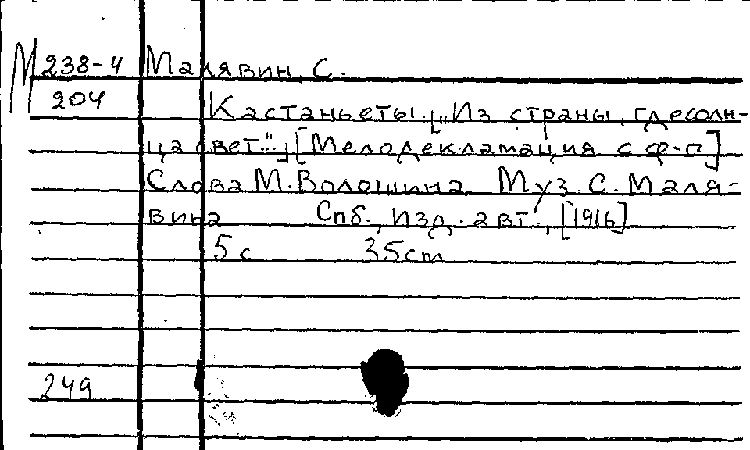 М 238-4 Малявин, С.
204 Кастаньеты. [„Из страны, где солн-
ца свет“.] [Мелодекламация с ф-п]
Слова М. Волошина. Муз. С. Маля-
вина Спб., изд. авт., [1916]
5 с 35 cm
249